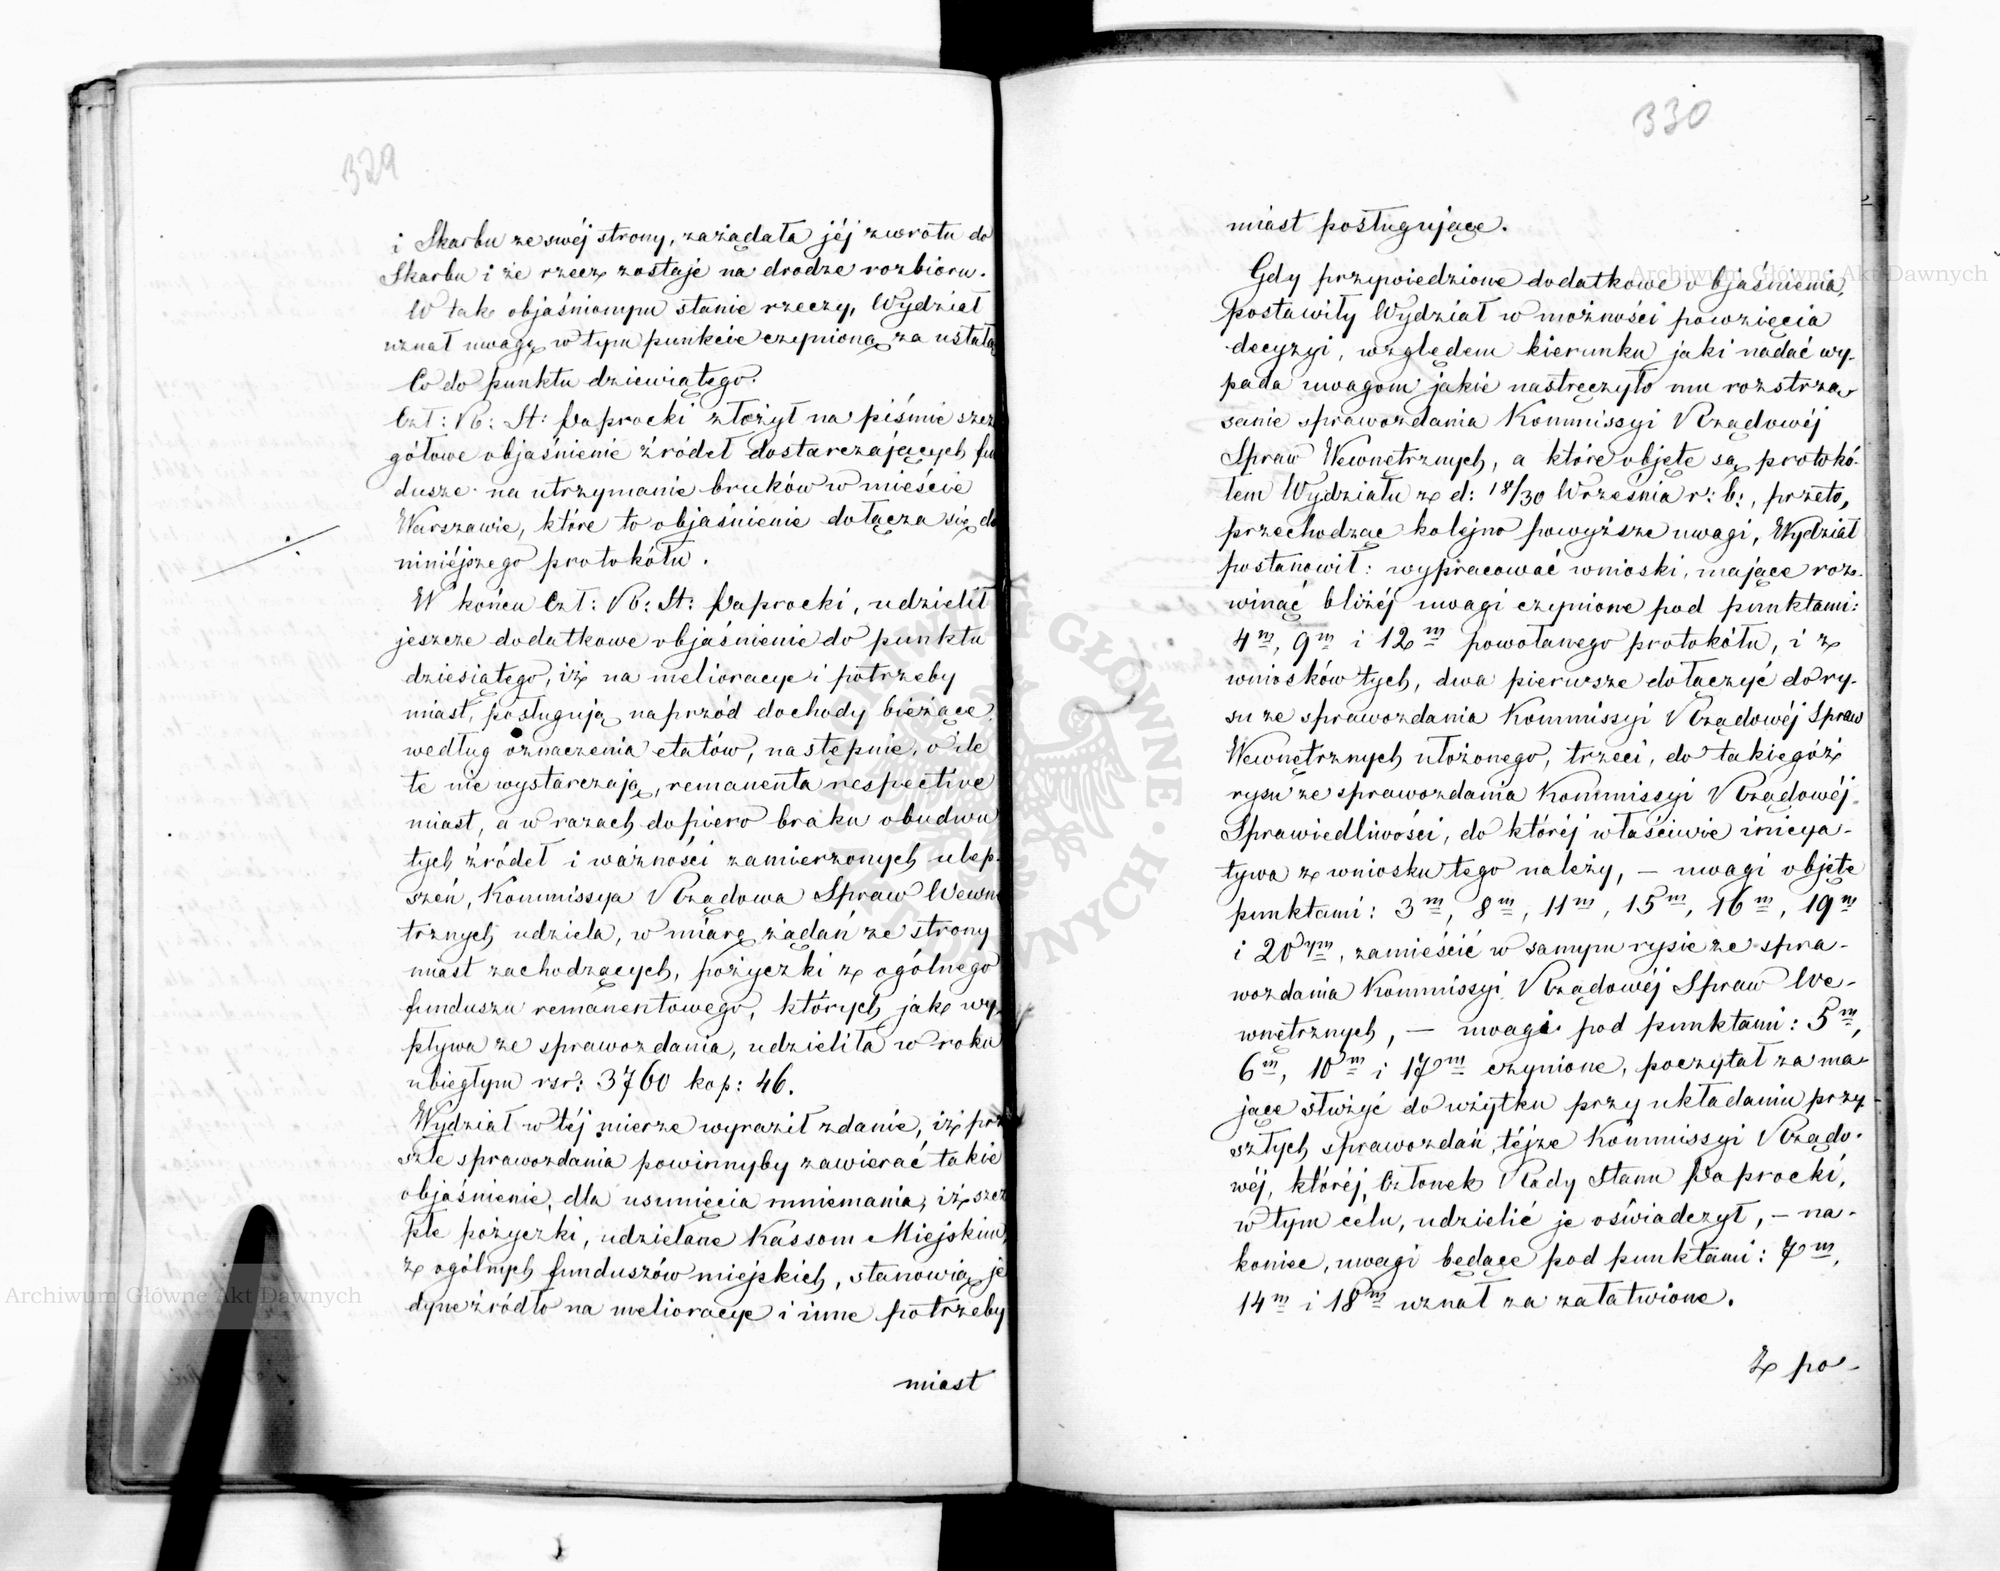 329
i Skarbu ze swéj strony, zażądała jéj zwrotu do
Skarbu i że rzecz zostaje na drodze rozbioru.
W tak objaśnionym stanie rzeczy, Wydział
uznał uwagę w tym punkcie czynioną za ustałą
Co do punktu dziewiątego.
Czł: R: St: Paprocki złożył na piśmie szcze
gółowe objaśnienie źródeł dostarczających fun
dusze na utrzymanie bruków w mieście
Warszawie, które to objaśnienie dołącza się do
niniéjszego protokółu.
W końcu Czł: R: St: Paprocki, udzielił
jeszcze dodatkowe objaśnienie do punktu
dziesiątego, iż na melioracye i potrzeby
miast, posługują naprzód dochody bieżące
według oznaczenia etatów, następnie, o ile
te nie wystarczają, remanenta respective
miast, a w razach dopiero braku obudwu
tych źródeł i ważności zamierzonych ulep-
szeń, Kommissya Rządowa Spraw Wewnę
trznych udziela, w miarę żądań ze strony
miast zachodzących, pożyczki z ogólnego
funduszu remanentowego, których jak wy
pływa ze sprawozdania, udzieliła w roku
ubiegłym rsr: 3760 kop: 46.
Wydział w téj mierze wyraził zdanie, iż przy
szłe sprawozdania powinnyby zawierać takie
objaśnienie, dla usunięcia mniemania, iż szczu
płe pożyczki, udzielane Kassom Miejskim,
z ogólnych funduszów miejskich, stanowią je
dyne źródło na melioracye i inne potrzeby
miast
330
miast posługujące.
Gdy przywiedzione dodatkowe objaśnienia,
postawiły Wydział w możności powzięcia
decyzyi, względem kierunku jaki nadać wy-
pada uwagom jakie nastręczyło mu roztrzą-
sanie sprawozdania Kommissyi Rządowéj
Spraw Wewnętrznych, a które objęte są protokó-
łem Wydziału z d: 18/30 Września r: b:, przeto,
przechodząc kolejno powyższe uwagi, Wydział
postanowił: wypracować wnioski, mające roz-
winąć bliżéj uwagi czynione pod punktami:
4m, 9m i 12m powołanego protokółu, i z
wniosków tych, dwa pierwsze dołączyć do ry-
su ze sprawozdania Kommissyi Rządowéj Spraw
Wewnętrznych ułożonego, trzeci, do takiegóż
rysu ze sprawozdania Kommissyi Rządowéj
Sprawiedliwości, do któréj właściwie inicya-
tywa z wniosku tego należy, — uwagi objęte
punktami: 3m, 8m, 11m, 15m, 16m, 19m
i 20ym, zamieścić w samym rysie ze spra-
wozdania Kommissyi Rządowéj Spraw We-
wnętrznych, — uwagi pod punktami: 5m,
6m, 10m i 17m czynione, poczytał za ma-
jące służyć do użytku przy układaniu przy-
szłych sprawozdań, téjże Kommissyi Rządo-
wéj, któréj, Członek Rady Stanu Paprocki,
w tym celu, udzielić je oświadczył, — na-
koniec, uwagi będące pod punktami: 7m,
14m i 18m uznał za załatwione.
Z po-
Archiwum Główne Akt Dawnych
Archiwum Główne Akt Dawnych